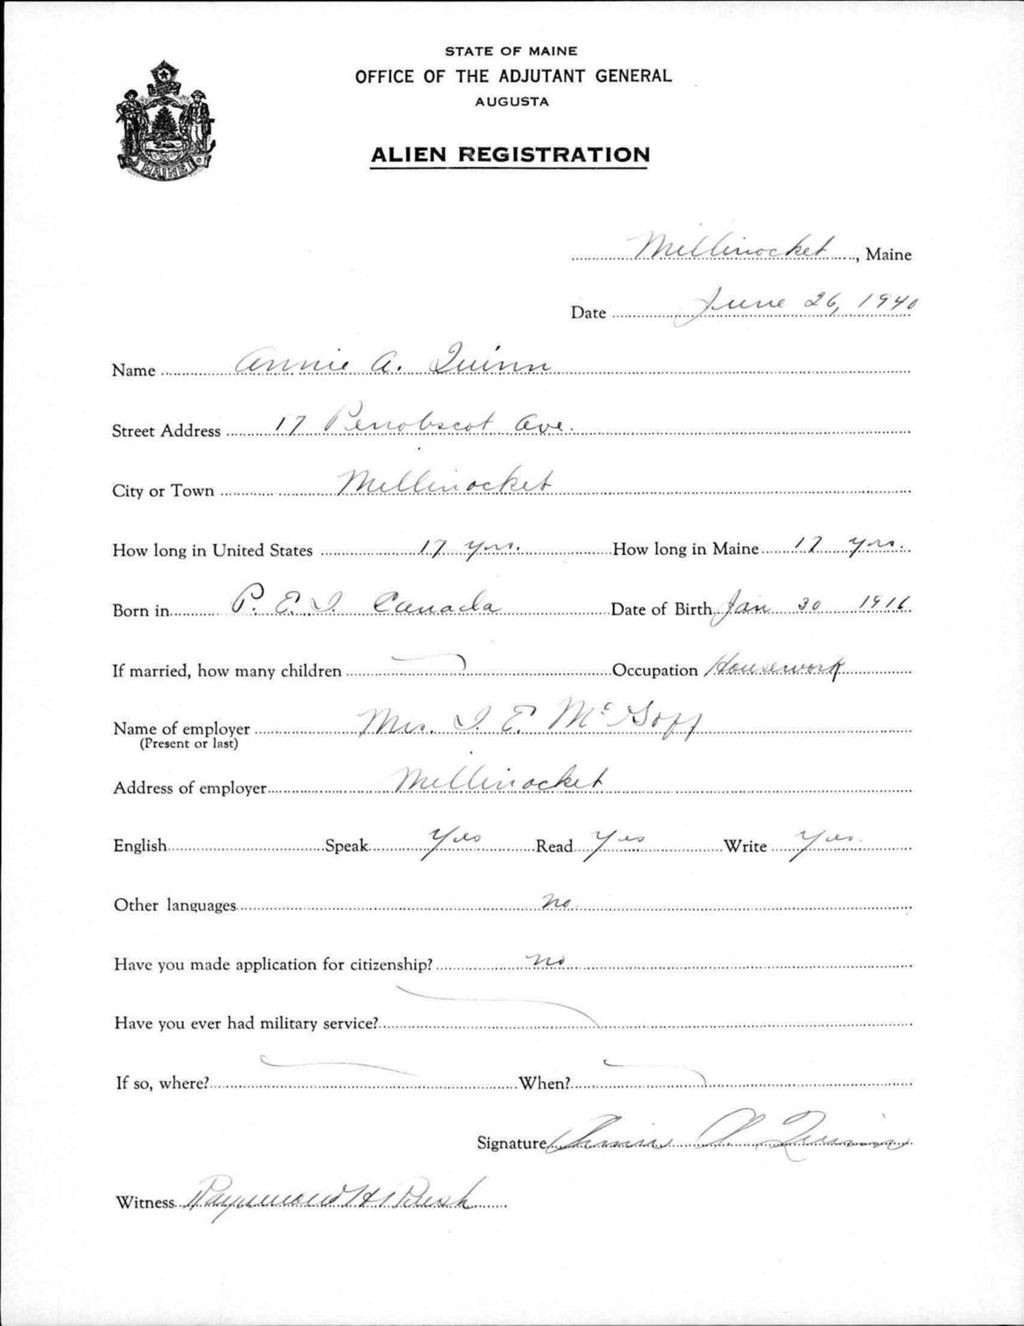 STATE OF MAINE
OFFICE OF THE ADJUTANT GENERAL
AUGUSTA
ALIEN REGISTRATION
MAINE
Millinocket, Maine
Date June 26, 1940
Name Annie A. Quinn
Street Address 17 Penobscot Ave.
City or Town Millinocket
How long in United States 17 yrs. How long in Maine 17 yrs.
Born in P. E. I. Canada Date of Birth Jan 30 1916
If married, how many children Occupation Housework
Name of employer Mrs. I. E. McGoff
(Present or last)
Address of employer Millinocket
English Speak Yes Read Yes Write Yes.
Other languages no
Have you made application for citizenship? no
Have you ever had military service?
If so, where? When?
Signature Annie A Quinn
Witness Raymond H Rush